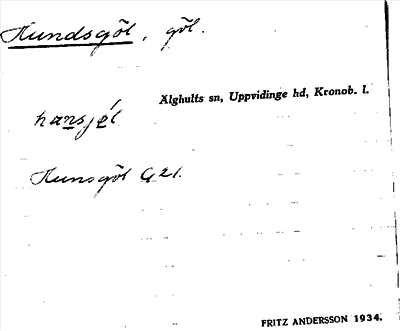 Hundsgöl, göl.
Älghults sn, Uppvidinge hd, Kronob. l.
hansjél
Hunsgöl G 21.
FRITZ ANDERSSON 1934.